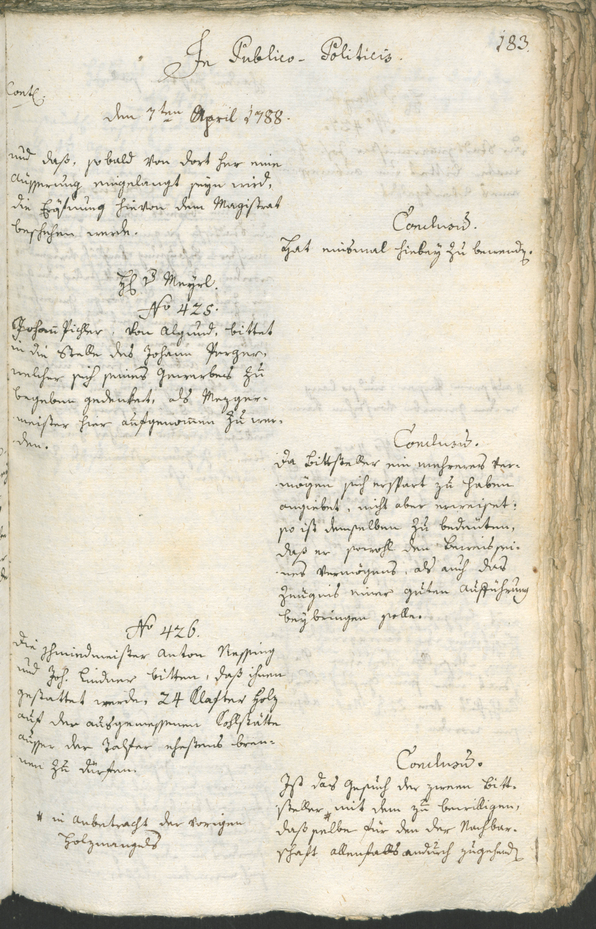 183.
In Publico-Politicis.
Cont.
den 7ten April 1788.
und daß, sobald von dort her eine
Äusserung eingelangt seyn wird,
die Eröfnung hievon dem Magistrat
beschehen werde.
Conclusum.
Hat einsmal hiebey zu bewendt.
H. v. Meyrl.
No 425.
Johann Pichler, von Algund, bittet
in die Stelle des Johann Perger,
welcher sich seines Gewerbes zu
begeben gedenket, als Mezger-
meister hier aufgenommen zu wer-
den.
Conclusum.
Da Bittsteller ein mehreres Ver-
mögen sich erspart zu haben
angiebet, nicht aber erweiset:
so ist demselben zu bedeuten,
daß er sowohl den Beweis sei-
nes Vermögens, als auch das
Zeugnis einer guten Aufführung
beybringen solle.
No 426.
Die Schmiedmeister Anton
und Joh. Lindner bitten, daß ihnen
gestattet werde, 24 Klafter Holz
auf der ausgewessenen Kohlstätte
ausser der Talfer ehestens bren-
nen zu dürfen.
* in Anbetracht der vorigen
Holzmangels
Conclusum.
Ist das Gesuch der zween Bitt-
steller * mit dem zu bewilligen,
daß selbe für den der Nachbar-
schaft allenfalls andurch zugehend